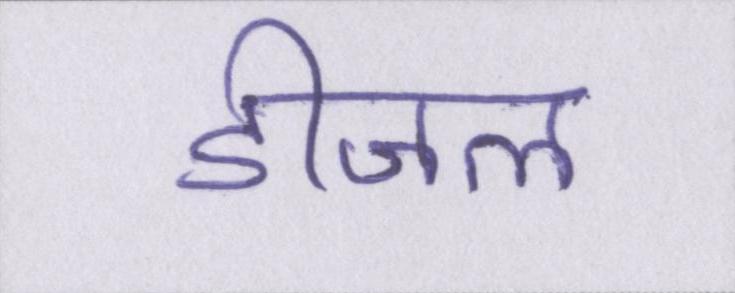 डीजल